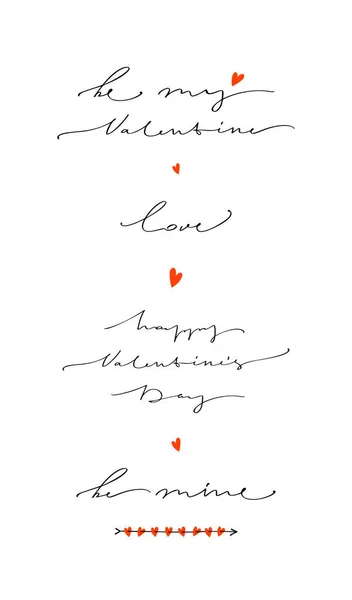 be my
Valentine
love
happy
Valentine's
Day
be mine